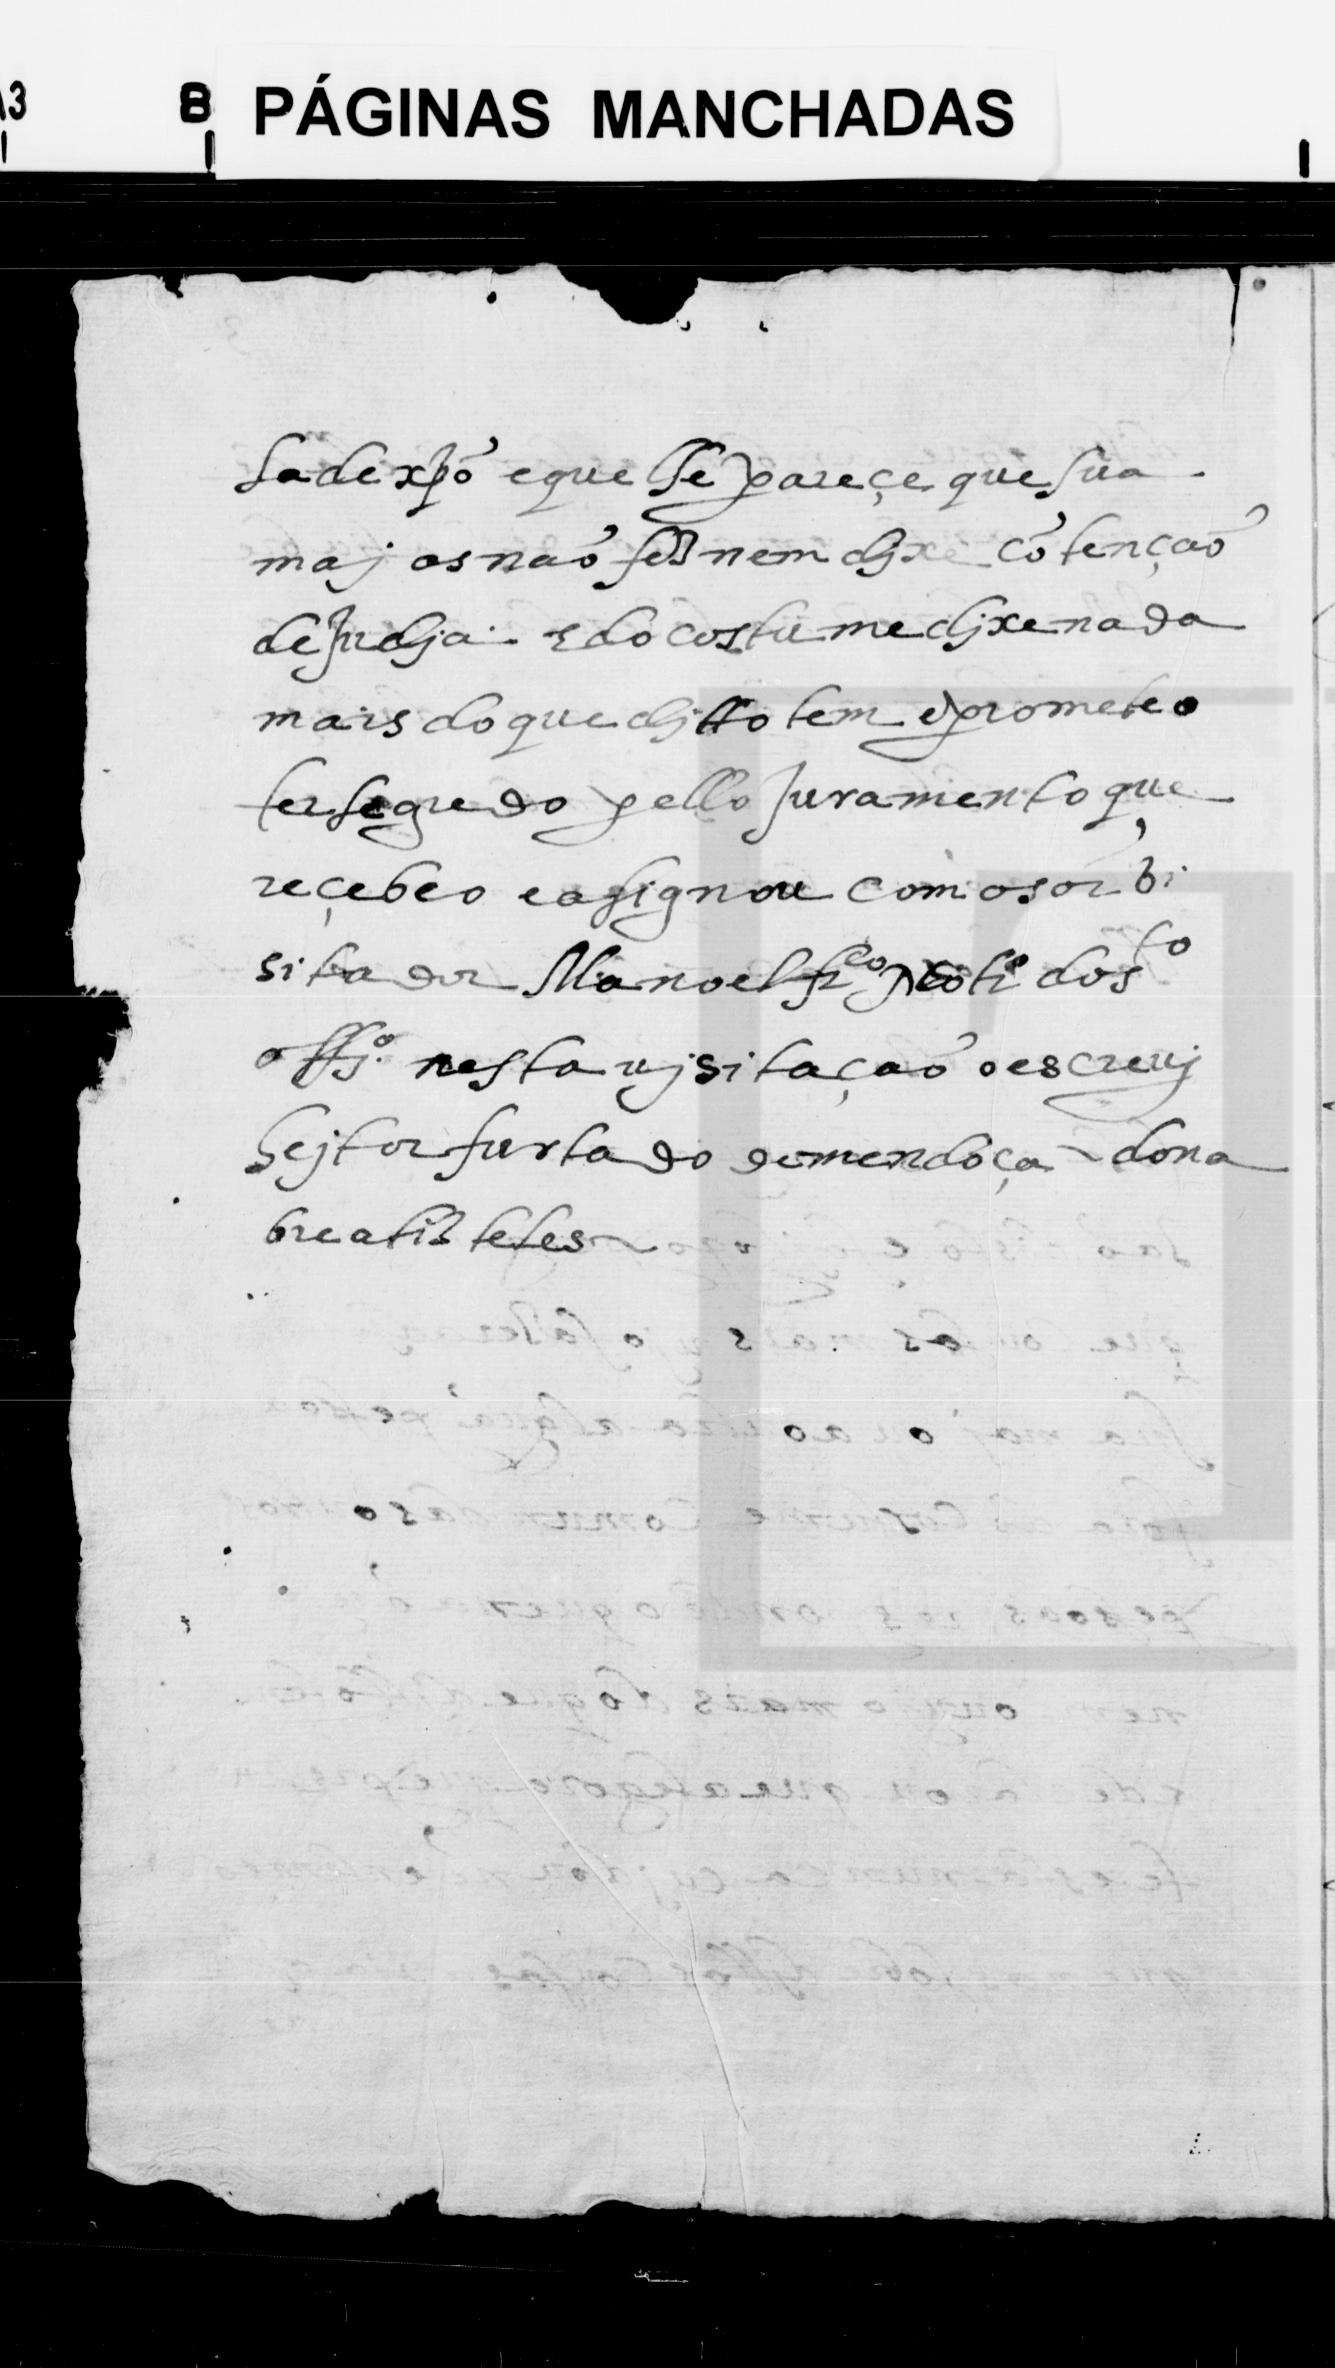 8 PÁGINAS MANCHADAS
sa de xpõ e que lhe pareçe que sua
maj as não fez nem dixe cõ tenção
de Judja. e do costume dixe nada
mais do que ditto tem e prometeo
ter segredo pello Juramento que
reçebeo e asignou com o sor vi
sitador Manoel frco notro do sto
offio nesta vjsitação o escrevj
hejtor furtado de mendoça ~ dona
breatiz teles ~